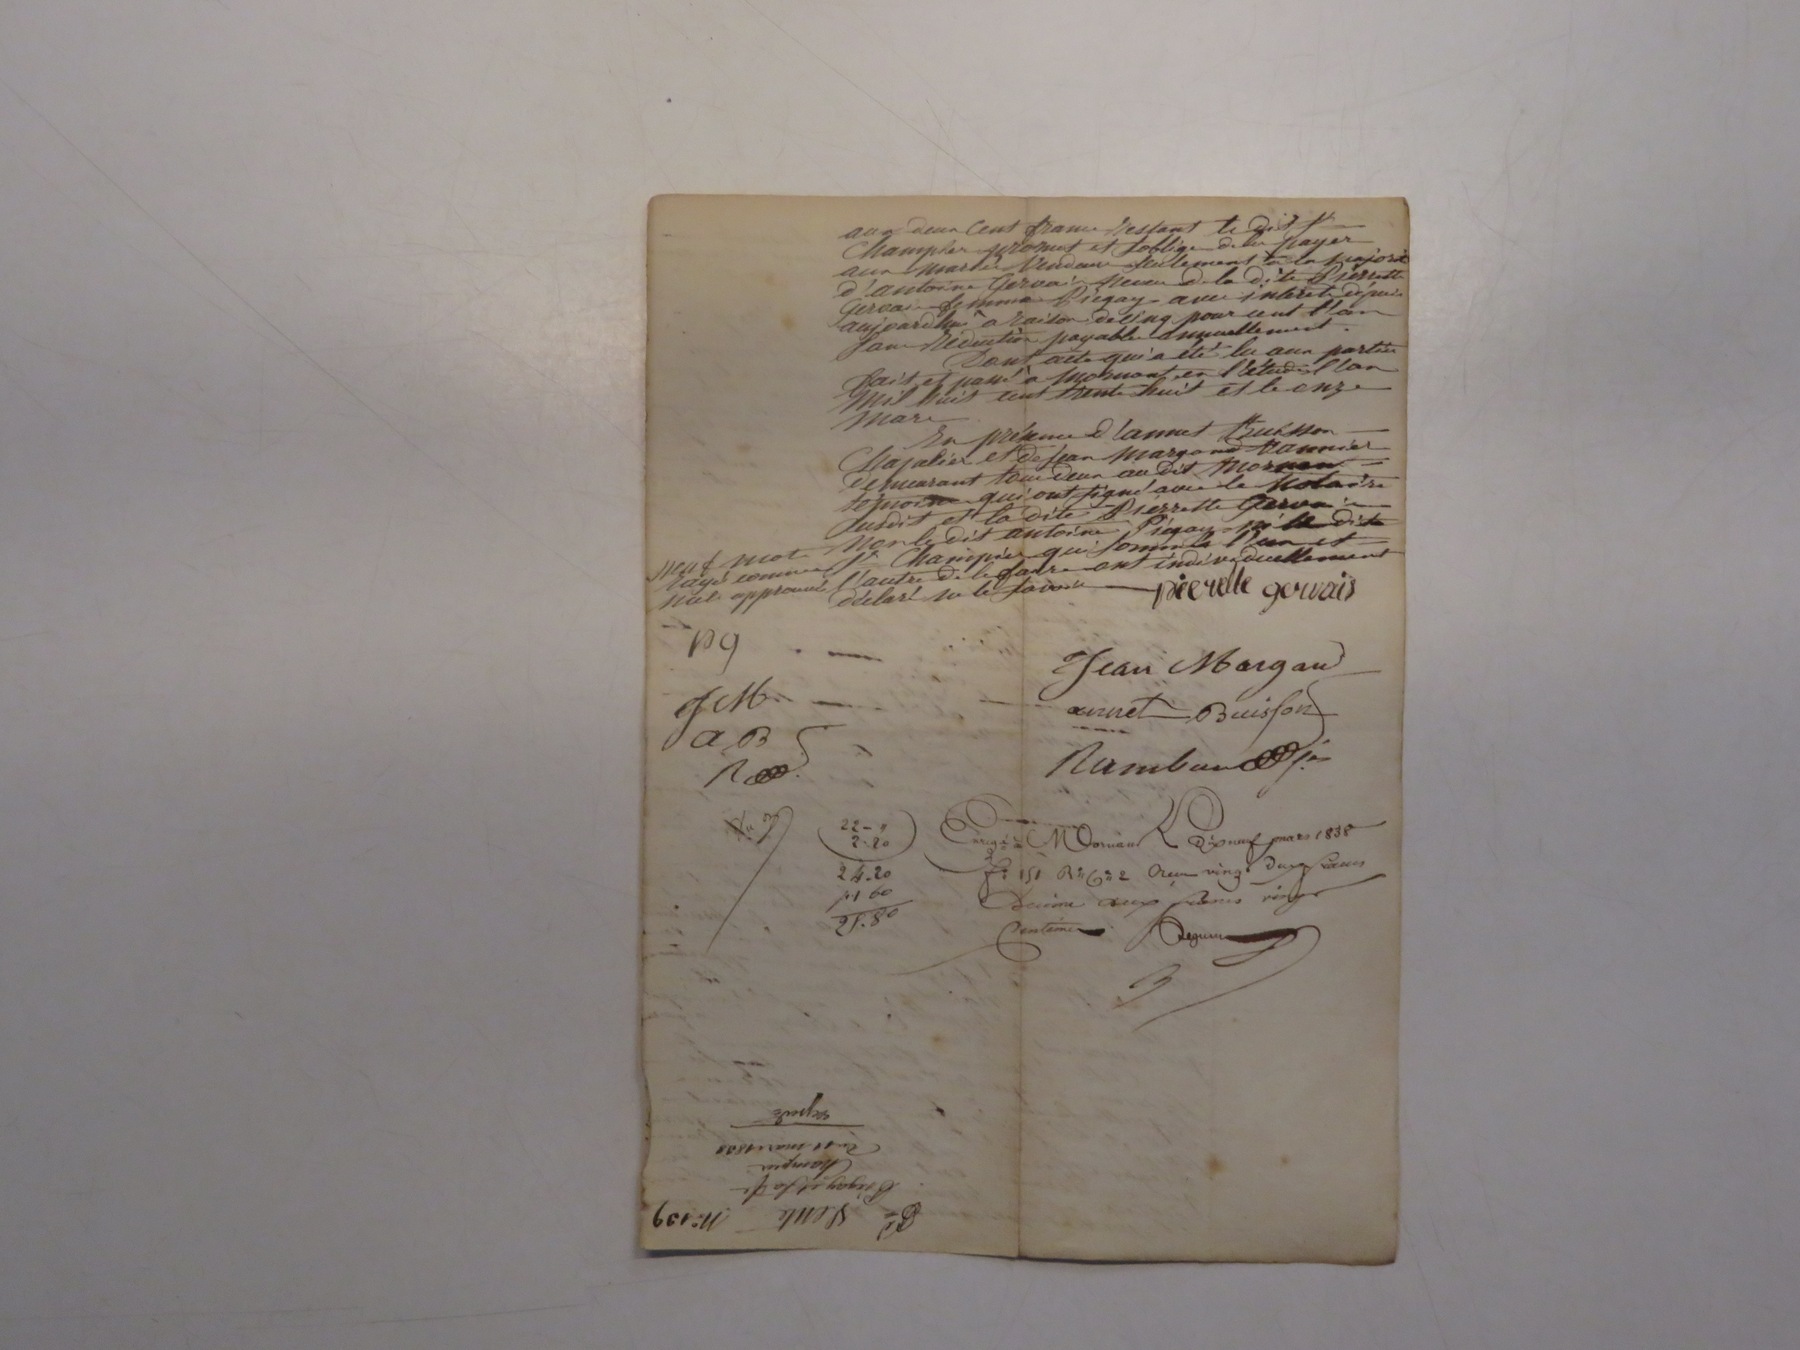 aux deux cent franc restant le dit Sr
Champier promet et soblige de les payer
aux mariés Vendeur seulement à la majorité
d'antoine Gervai neveu de la dite Pierrette
Gervai femme Piegay avec interet depuis
aujourdhui a raison de cinq pour cent l'an
sans Réduction payable annuellement.
Dont acte qui a été lu aux parties
fait et passé à Mornant en l'étude l'an
Mil huit cent trente huit et le onze
Mars
En présence d'annet Buisson
Chapelier et de Jean Margand Vannier
demeurant tous deux au dit Mornan
témoins qui ont signé avec le Notaire
susdit et la dite Pierrette Gervai
Non le dit antoine Piegay ni le dit
Sr Champier qui sommés l'un et
l'autre de le faire ont individuellement
déclaré ne le savoir
neuf mots
rayé comme
nuls approuvé
pierette gervais
pg
Jean Margand
J M
annet Buisson
a B
Rambaud
R
22 - "
2 - 20
24.20
1 60
Enregé à Mornant le Dixneuf mars 1838
fo 151 Ro Ce 2 Reçu vingt deux francs
Decime deux francs vingt
Centimes
reperté
Du 11 mars 1838
Champier
Piegay et sa fe
Vente No 139